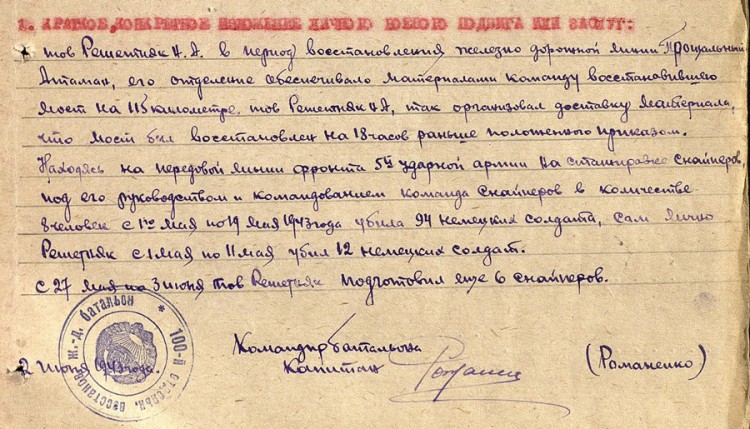 1. КРАТКОЕ, КОНКРЕТНОЕ ИЗЛОЖЕНИЕ ЛИЧНОГО БОЕВОГО ПОДВИГА ИЛИ ЗАСЛУГ:
тов Решетняк Н.А. в период восстановления железно дорожной линии Прощальный
Атаман, его отделение обеспечивало материалами команду восстановившего
мост на 115 километре. тов Решетняк Н.А, так организовал доставку материала,
что мост был восстановлен на 18 часов раньше положенного приказом.
Находясь на передовой линии фронта 5й ударной армии на стажировке снайперов
под его руководством и командованием команда снайперов в количестве
8 человек с 1го мая по 19 мая 1943 года убила 94 немецких солдата, сам лично
Решетняк с 1 мая по 11 мая убил 12 немецких солдат.
с 27 мая по 3 июня тов Решетняк подготовил еще 6 снайперов.
Командир батальона
2 июня 1943 года. Капитан (Романенко)
100-й отдельн. восстанов. ж.-д. батальон